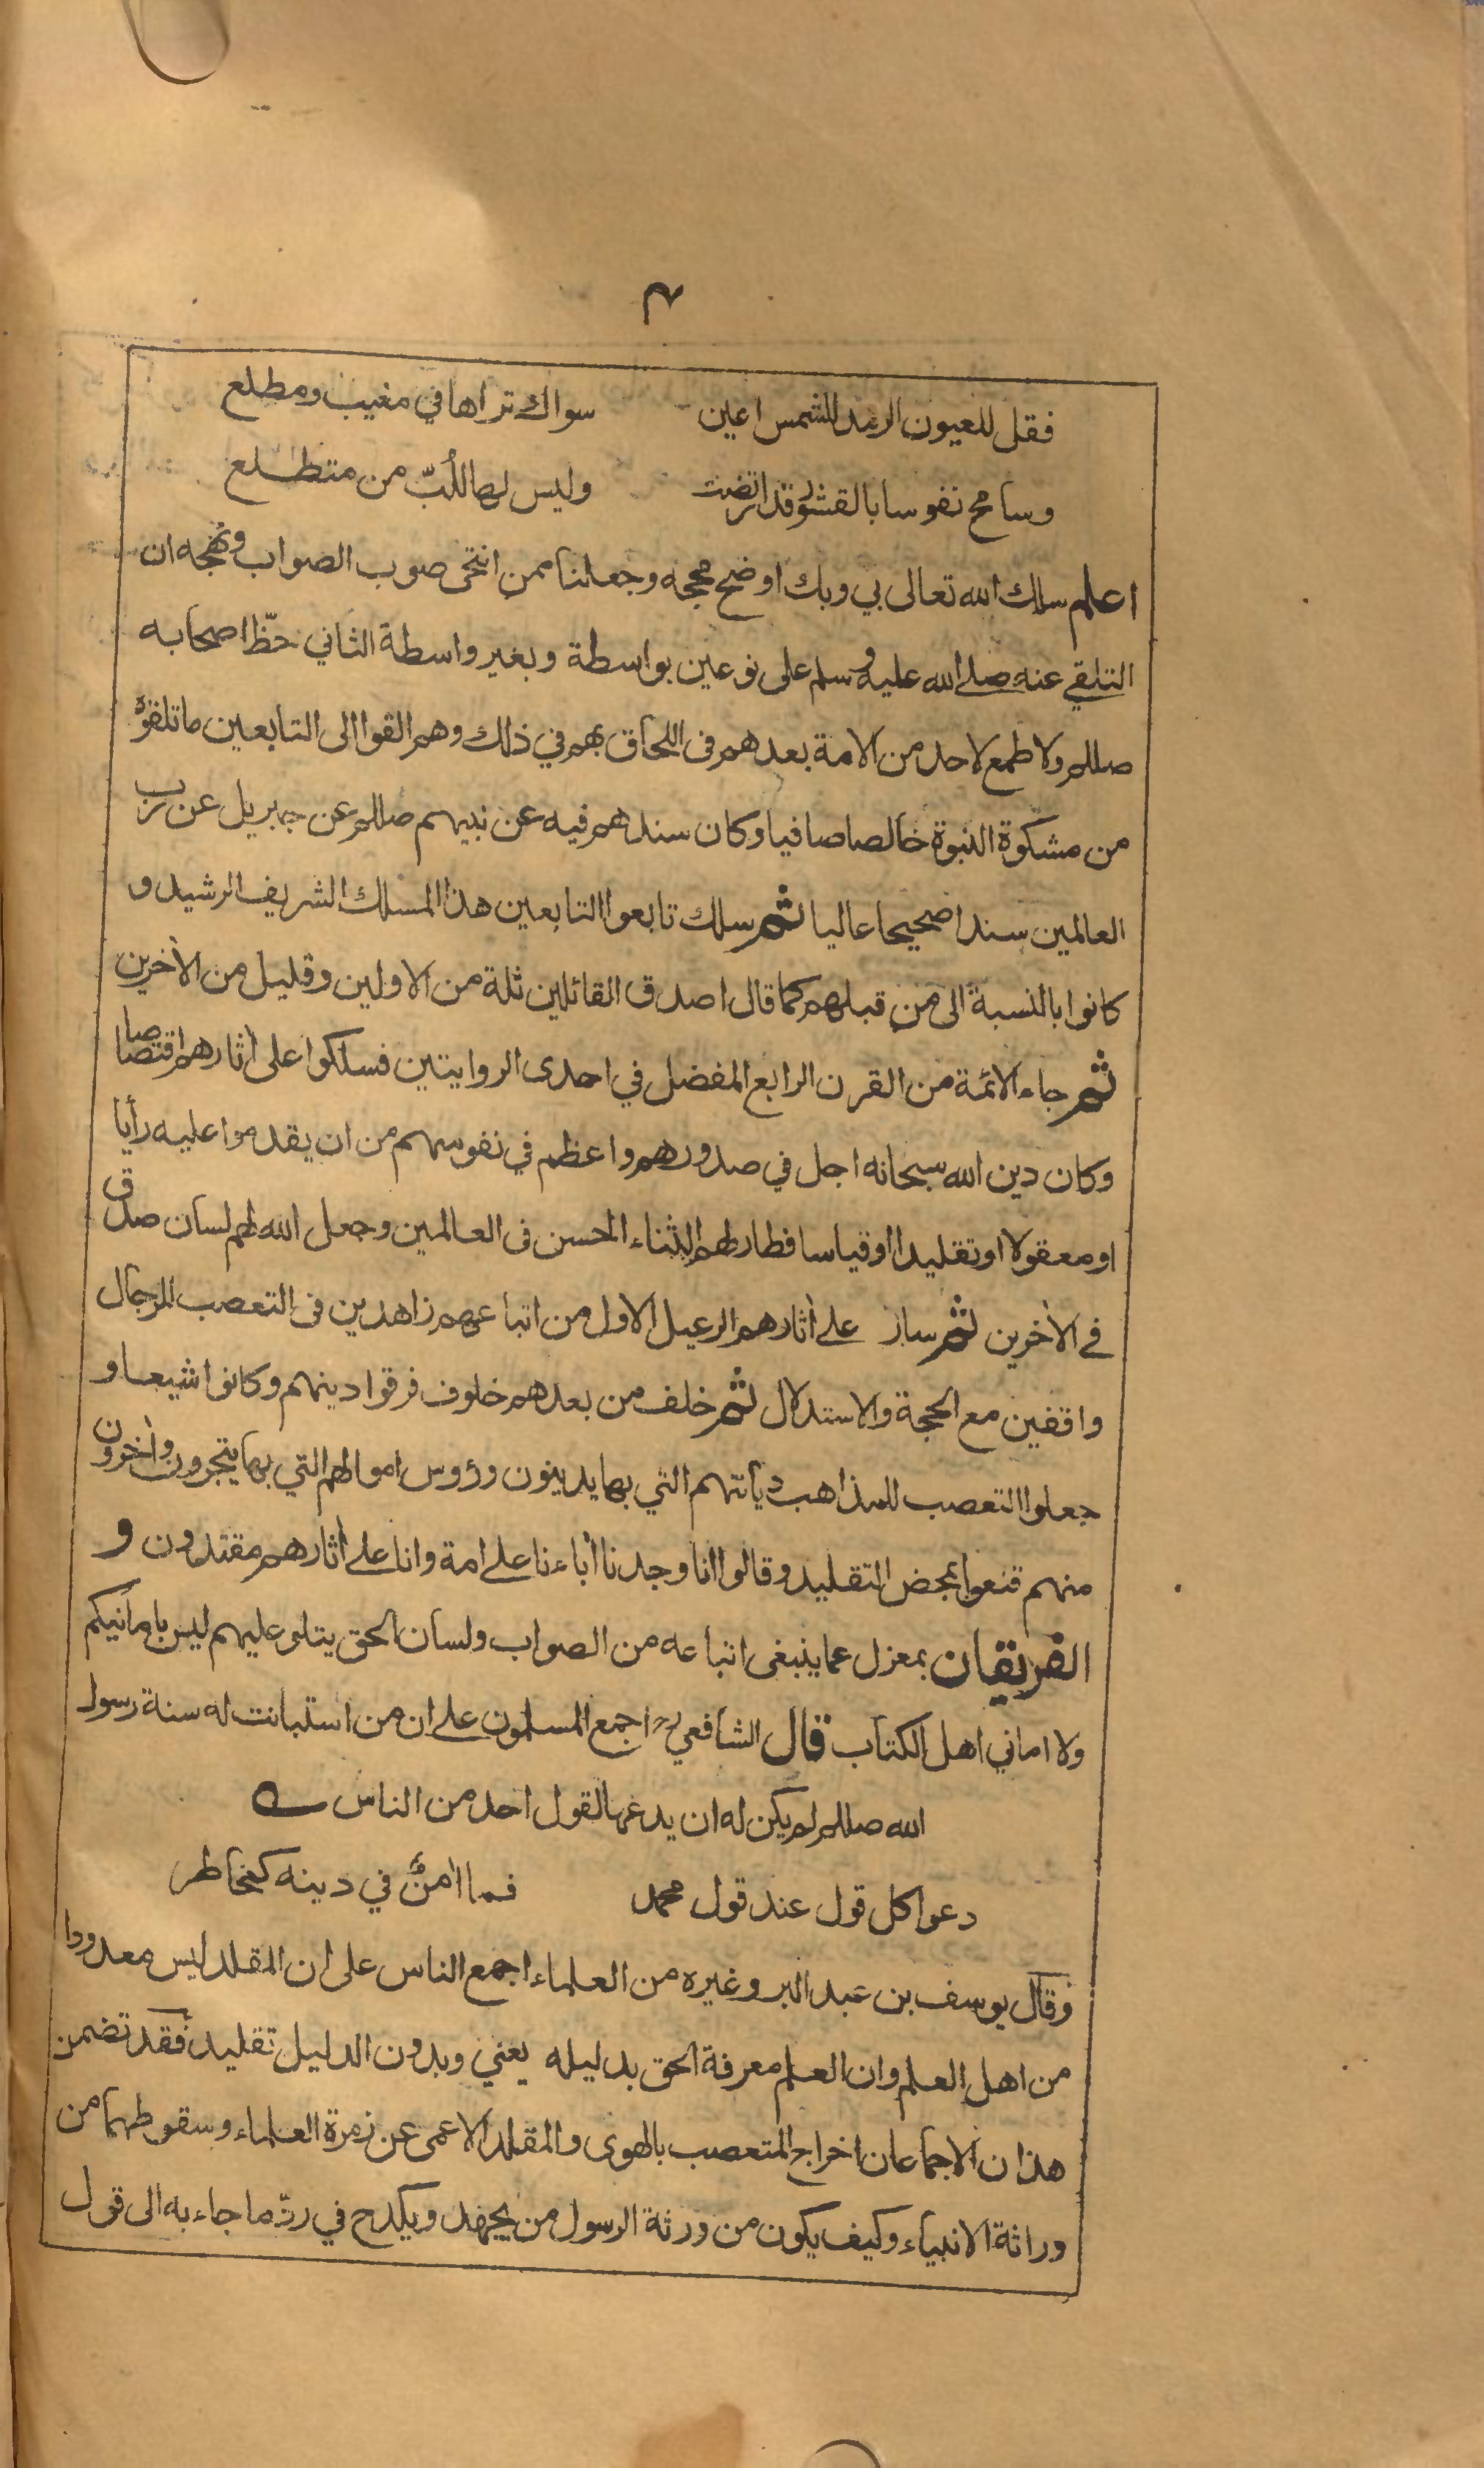 ۴
فقل للعيون الرمد للشمس اعين سواك تراها في مغيب ومطلع
وسامح نفوسا بالقشور قد ارتضت وليس لها للّب من متطلع
اعلم سلك الله تعالى بي وبك اوضح محجه وجعلنا ممن انتحى صوب الصواب ونهجه ان
التلقي عنه صلى الله عليه وسلم على نوعين بواسطة وبغير واسطة الثاني حظّ اصحابه
صللم ولا طمع لاحد من الامة بعدهم فى اللحاق بهم في ذلك وهم القوا الى التابعين ما تلقوه
من مشكوة النبوة خالصا صافيا وكان سندهم فيه عن نبيهم صللم عن جبريل عن رب
العالمين سندا صحيحا عاليا ثم سلك تابعوا التابعين هذا المسلك الشريف الرشيد و
كانوا بالنسبة الى من قبلهم كما قال اصدق القائلين ثلة من الاولين وقليل من الآخرين
ثم جاء الائمة من القرن الرابع المفضل في احدى الروايتين فسلكوا على آثارهم اقتصاصا
وكان دين الله سبحانه اجل في صدورهم واعظم في نفوسهم من ان يقدموا عليه رأيا
او معقولا او تقليدا او قياسا فطار لهم الثناء الحسن فى العالمين وجعل الله لهم لسان صدق
في الآخرين ثم سار على آثارهم الرعيل الاول من اتباعهم زاهدين فى التعصب للرجال
واقفين مع الحجة والاستدلال ثم خلف من بعدهم خلوف فرقوا دينهم وكانوا شيعا و
جعلوا التعصب للمذاهب ديانتهم التي بها يدينون ورؤس اموالهم التي بها يتجرون وآخرون
منهم قنعوا بمحض التقليد وقالوا انا وجدنا آباءنا على امة وانا على آثارهم مقتدون و
الفريقان بمعزل عما ينبغى اتباعه من الصواب ولسان الحق يتلو عليهم ليس بامانيكم
ولا اماني اهل الكتاب قال الشافعي رح اجمع المسلمون على ان من استبانت له سنة رسول
الله صللم لم يكن له ان يدعها لقول احد من الناس
دعوا كل قول عند قول محمد فما آمنٌ في دينه كمخاطر
وقال يوسف بن عبد البر وغيره من العلماء اجمع الناس على ان المقلد ليس معدودا
من اهل العلم وان العلم معرفة الحق بدليله يعني وبدون الدليل تقليد فقد تضمن
هذان الاجماعان اخراج المتعصب بالهوى والمقلد الاعمى عن زمرة العلماء وسقوطهما من
وراثة الانبياء وكيف يكون من ورثة الرسول من يجهد ويكدح في ردّ ما جاء به الى قول